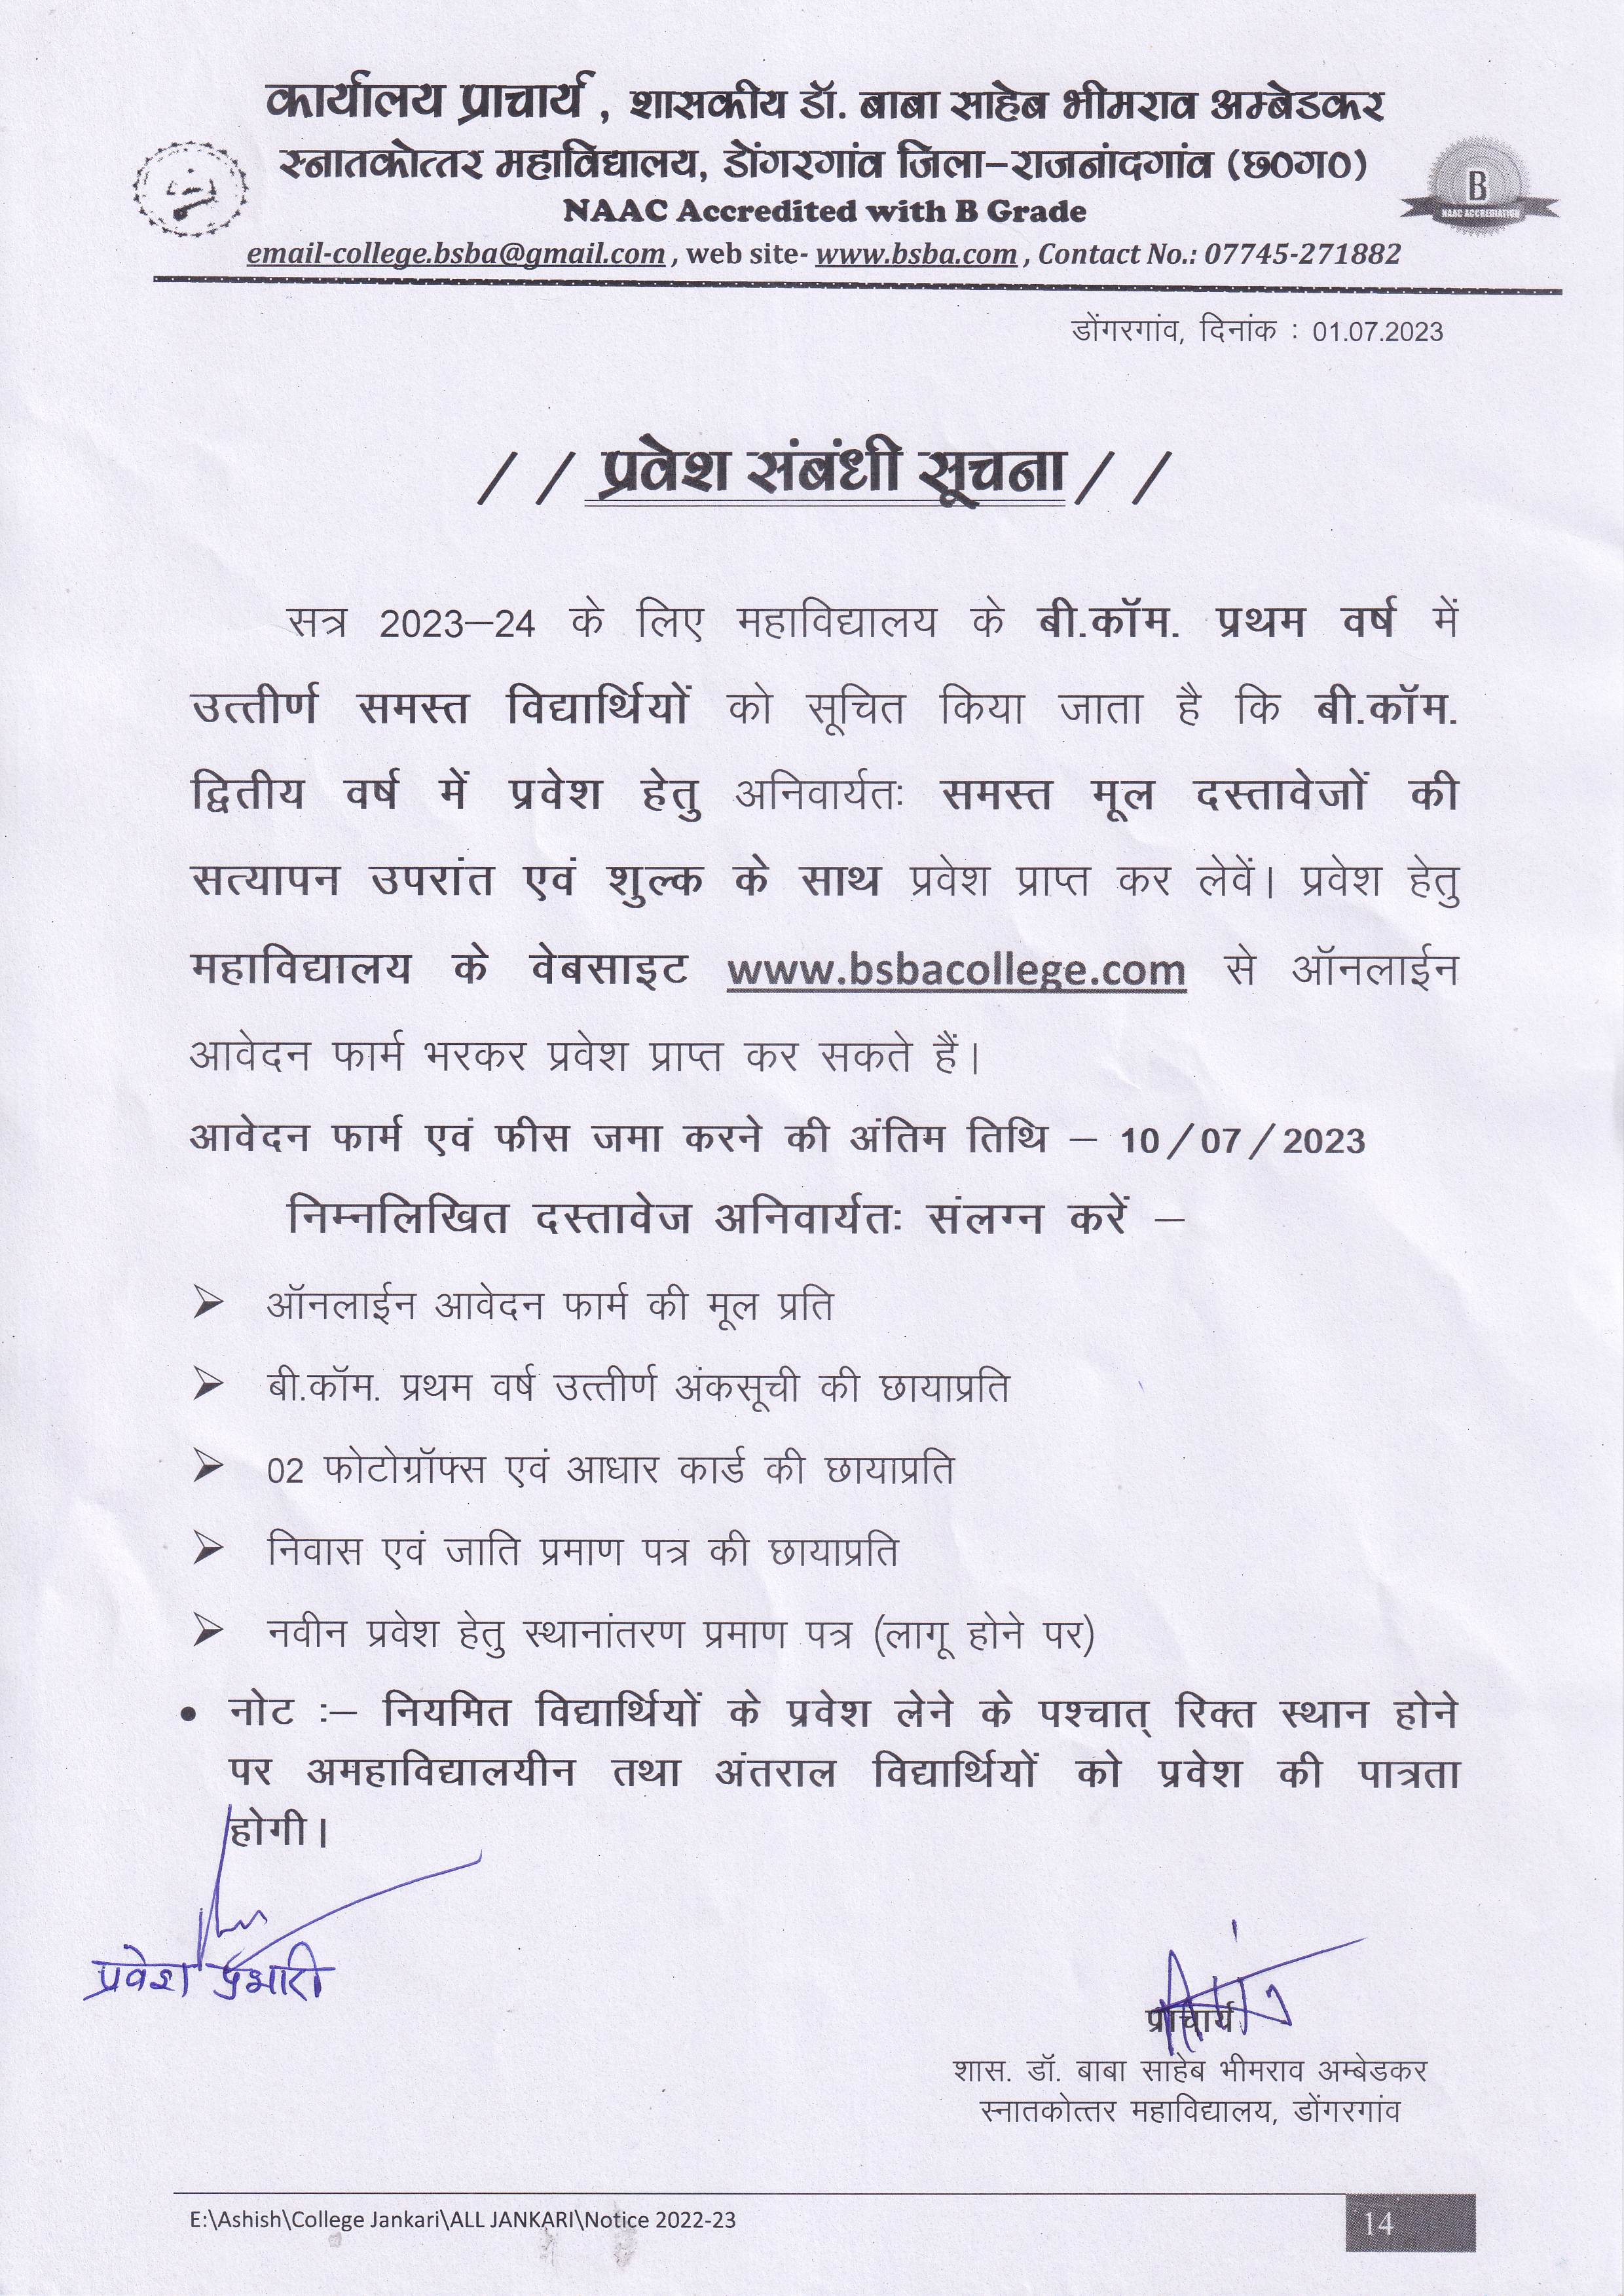 कार्यालय प्राचार्य , शासकीय डॉ. बाबा साहेब भीमराव अम्बेडकर
स्नातकोत्तर महाविद्यालय, डोंगरगांव जिला–राजनांदगांव (छ0ग0)
B
NAAC ACCREDIATION
NAAC Accredited with B Grade
email-college.bsba@gmail.com , web site- www.bsba.com , Contact No.: 07745-271882
डोंगरगांव, दिनांक : 01.07.2023
// प्रवेश संबंधी सूचना //
सत्र 2023–24 के लिए महाविद्यालय के बी.कॉम. प्रथम वर्ष में
उत्तीर्ण समस्त विद्यार्थियों को सूचित किया जाता है कि बी.कॉम.
द्वितीय वर्ष में प्रवेश हेतु अनिवार्यतः समस्त मूल दस्तावेजों की
सत्यापन उपरांत एवं शुल्क के साथ प्रवेश प्राप्त कर लेवें। प्रवेश हेतु
महाविद्यालय के वेबसाइट www.bsbacollege.com से ऑनलाईन
आवेदन फार्म भरकर प्रवेश प्राप्त कर सकते हैं।
आवेदन फार्म एवं फीस जमा करने की अंतिम तिथि – 10/07/2023
निम्नलिखित दस्तावेज अनिवार्यतः संलग्न करें –
➢ ऑनलाईन आवेदन फार्म की मूल प्रति
➢ बी.कॉम. प्रथम वर्ष उत्तीर्ण अंकसूची की छायाप्रति
➢ 02 फोटोग्रॉफ्स एवं आधार कार्ड की छायाप्रति
➢ निवास एवं जाति प्रमाण पत्र की छायाप्रति
➢ नवीन प्रवेश हेतु स्थानांतरण प्रमाण पत्र (लागू होने पर)
• नोट :– नियमित विद्यार्थियों के प्रवेश लेने के पश्चात् रिक्त स्थान होने
पर अमहाविद्यालयीन तथा अंतराल विद्यार्थियों को प्रवेश की पात्रता
होगी।
प्रवेश प्रभारी
प्राचार्य
शास. डॉ. बाबा साहेब भीमराव अम्बेडकर
स्नातकोत्तर महाविद्यालय, डोंगरगांव
E:\Ashish\College Jankari\ALL JANKARI\Notice 2022-23
14